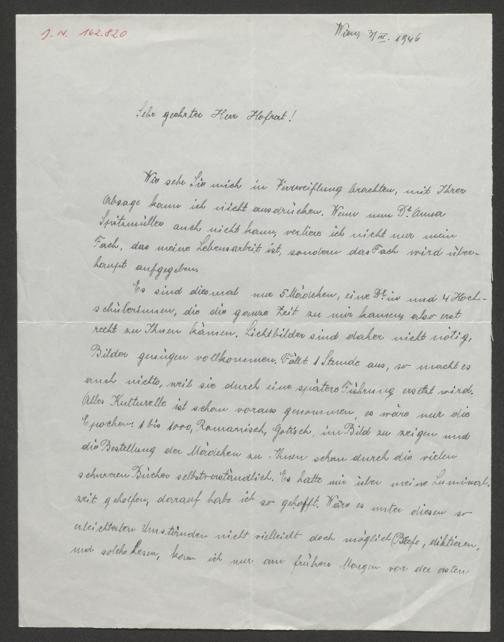 J. N. 162.820
Wien, 3/IV. 1946
Sehr geehrter Herr Hofrat!
Wie sehr Sie mich in Verzweiflung brachten, mit Ihrer
Absage kann ich nicht ausdrücken. Wenn nun Dr. Anna
Spitzmüller auch nicht kann, verliere ich nicht nur mein
Fach, das meine Lebensarbeit ist, sondern das Fach wird über-
haupt aufgegeben.
Es sind diesmal nur 5 Mädchen, eine Dr. in und 4 Hoch-
schülerinnen, die die ganze Zeit zu mir kamen, also erst
recht zu Ihnen kämen. Lichtbilder sind daher nicht nötig,
Bilder genügen vollkommen. Fällt 1 Stunde aus, so macht es
auch nichts, weil sie durch eine spätere Führung ersetzt wird.
Alles Kulturelle ist schon voraus genommen, es wäre nur die
Epochen 1 bis 1000, Romanisch, Gotisch, im Bild zu zeigen und
die Bestellung der Mädchen zu Ihnen schon durch die vielen
schweren Bücher selbstverständlich. Es hätte mir über meine
zeit geholfen, darauf habe ich so gehofft. Wäre es unter diesen so
erleichterten Umständen nicht vielleicht doch möglich Briefe, diktieren,
und solche Lesen, kann ich nur am frühen Morgen vor der ersten